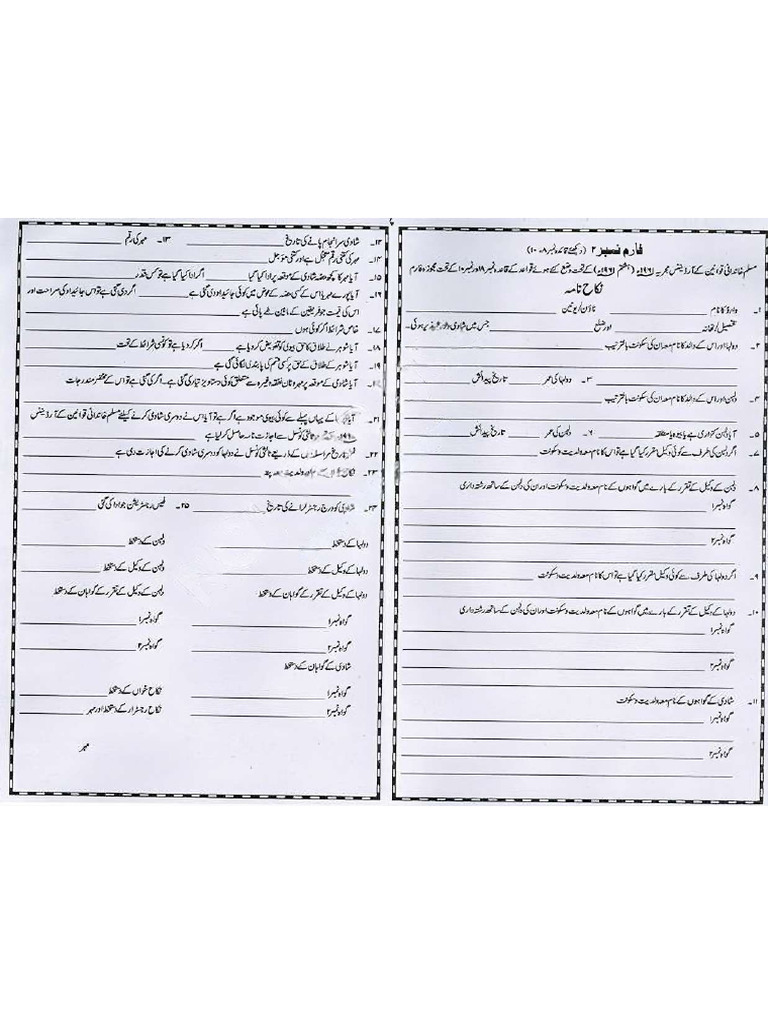 فارم نمبر ۲ (دیکھئے قاعدہ نمبر ۸۔۱۰)
مسلم خاندانی قوانین کے آرڈیننس مجریہ ۱۹۶۱ء (ہشتم ۱۹۶۱ء) کے تحت وضع کئے ہوئے قواعد کے قاعدہ نمبر ۸ اور نمبر ۱۰ کے تحت مجوزہ فارم
نکاح نامہ
۱۔ وارڈ کا نام ٹاؤن/یونین
تحصیل/تھانہ اور ضلع جس میں شادی وقوع پذیر ہوئی۔
۲۔ دولہا اور اس کے والد کا نام معہ ان کی سکونت بالترتیب
۳۔ دولہا کی عمر تاریخ پیدائش
۴۔ دلہن اور اس کے والد کا نام معہ ان کی سکونت بالترتیب
۵۔ آیا دلہن کنواری ہے یا بیوہ یا مطلقہ ۶۔ دلہن کی عمر تاریخ پیدائش
۷۔ اگر دلہن کی طرف سے کوئی وکیل مقرر کیا گیا ہے تو اس کا نام معہ ولدیت و سکونت
۸۔ دلہن کے وکیل کے تقرر کے بارے میں گواہوں کے نام معہ ولدیت و سکونت اور ان کی دلہن کے ساتھ رشتہ داری
گواہ نمبر۱
گواہ نمبر۲
۹۔ اگر دولہا کی طرف سے کوئی وکیل مقرر کیا گیا ہے تو اس کا نام معہ ولدیت و سکونت
۱۰۔ دولہا کے وکیل کے تقرر کے بارے میں گواہوں کے نام معہ ولدیت و سکونت اور ان کی دلہن کے ساتھ رشتہ داری
گواہ نمبر۱
گواہ نمبر۲
۱۱۔ شادی کے گواہوں کے نام معہ ولدیت و سکونت
گواہ نمبر۱
گواہ نمبر۲
۱۲۔ شادی سرانجام پانے کی تاریخ ۱۳۔ مہر کی رقم
۱۴۔ مہر کی کتنی رقم معجل ہے اور کتنی مؤجل
۱۵۔ آیا مہر کا کچھ حصہ شادی کے موقعہ پر ادا کیا گیا اگر ادا کیا گیا ہے تو کس قدر
۱۶۔ آیا پورے مہر یا اس کے کسی حصہ کے عوض میں کوئی جائیداد دی گئی ہے اگر دی گئی ہے تو اس جائیداد کی صراحت اور
اس کی قیمت جو فریقین کے مابین طے پائی ہے
۱۷۔ خاص شرائط اگر کوئی ہوں
۱۸۔ آیا شوہر نے طلاق کا حق بیوی کو تفویض کر دیا ہے اگر کر دیا ہے تو کونسی شرائط کے تحت
۱۹۔ آیا شوہر کے طلاق کے حق پر کسی قسم کی پابندی لگائی گئی ہے
آیا شادی کے موقعہ پر مہر و نان نفقہ وغیرہ سے متعلق کوئی دستاویز تیار کی گئی ہے۔ اگر کی گئی ہے تو اس کے مختصر مندرجات
۲۱۔ آیا دولہا کے یہاں پہلے سے کوئی بیوی موجود ہے اگر ہے تو آیا اس نے دوسری شادی کرنے کیلئے مسلم خاندانی قوانین کے آرڈیننس
ثالثی کونسل سے اجازت نامہ حاصل کر لیا ہے
۲۲۔ نمبر تاریخ مراسلہ جس کے ذریعے ثالثی کونسل نے دولہا کو دوسری شادی کرنے کی اجازت دی ہے
۲۳۔ ولدیت معہ پتہ
۲۴۔ شادی کو درج رجسٹر کرانے کی تاریخ ۲۵۔ فیس رجسٹریشن جو ادا کی گئی
دولہا کے دستخط دلہن کے دستخط
دولہا کے وکیل کے دستخط دلہن کے وکیل کے دستخط
دولہا کے وکیل کے تقرر کے گواہان کے دستخط دلہن کے وکیل کے تقرر کے گواہان کے دستخط
گواہ نمبر۱ گواہ نمبر۱
گواہ نمبر۲ گواہ نمبر۲
شادی کے گواہان کے دستخط
گواہ نمبر۱ نکاح خواں کے دستخط
گواہ نمبر۲ نکاح رجسٹرار کے دستخط اور مہر
مہر